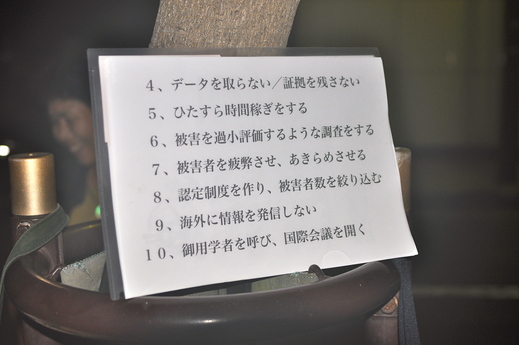 4、データを取らない／証拠を残さない
5、ひたすら時間稼ぎをする
6、被害を過小評価するような調査をする
7、被害者を疲弊させ、あきらめさせる
8、認定制度を作り、被害者数を絞り込む
9、海外に情報を発信しない
10、御用学者を呼び、国際会議を開く